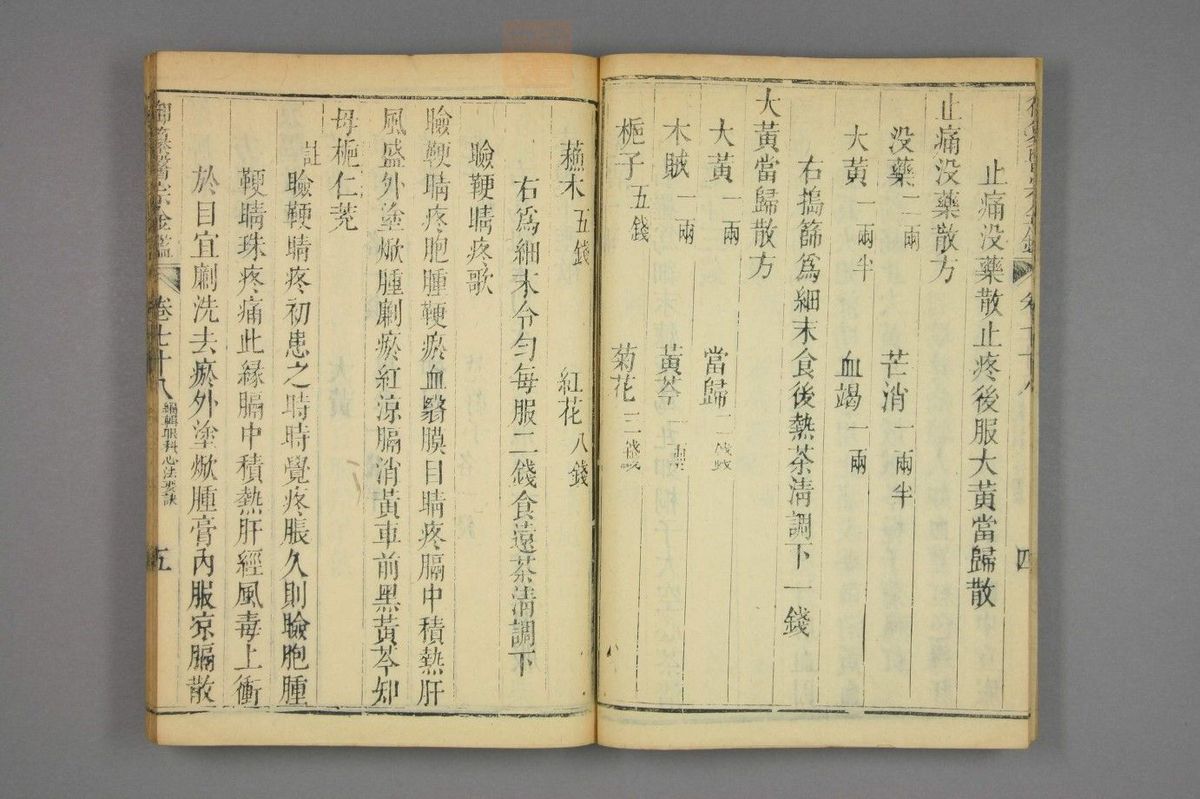 止痛没藥散止疼後服大黃當歸散
止痛没藥散方
没藥二兩 芒消一兩半
大黃一兩半 血竭一兩
右搗篩為細末食後熱茶清調下一錢
大黃當歸散方
大黃一兩 當歸二錢
木賊一兩 黃芩一兩
梔子五錢 菊花三錢
四
蘓木五錢 紅花八錢
右為細末令勻每服二錢食遠茶清調下
瞼鞕睛疼歌
瞼鞕睛疼胞腫鞕瘀血翳膜目睛疼膈中積熱肝
風盛外塗焮腫劆瘀紅涼膈消黃車前黑黃芩知
母梔仁茺
註瞼鞕睛疼初患之時時覺疼脹久則瞼胞腫
鞕睛珠疼痛此緣膈中積熱肝經風毒上衝
於目宜劆洗去瘀外塗焮腫膏內服凉膈散
御纂醫宗金鑑 卷七十八 編輯眼科心法要訣 五